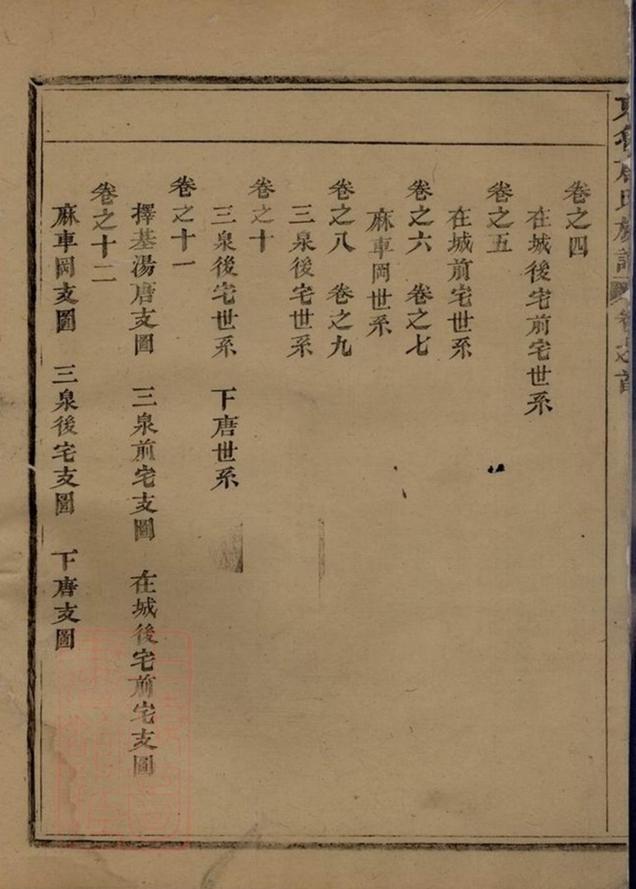 卷之四
在城後宅前宅世系
卷之五
在城前宅世系
卷之六　卷之七
麻車岡世系
卷之八　卷之九
三泉後宅世系
卷之十
三泉後宅世系　下唐世系
卷之十一
擇基湯唐支圖　三泉前宅支圖　在城後宅前宅支圖
卷之十二
麻車岡支圖　三泉後宅支圖　下唐支圖
氏族譜
卷之首